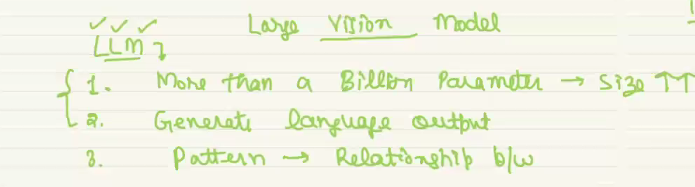 Large Vision Model
LLM
1. More than a Billion Parameter → Size ↑↑
2. Generate language output
3. Pattern → Relationship b/w